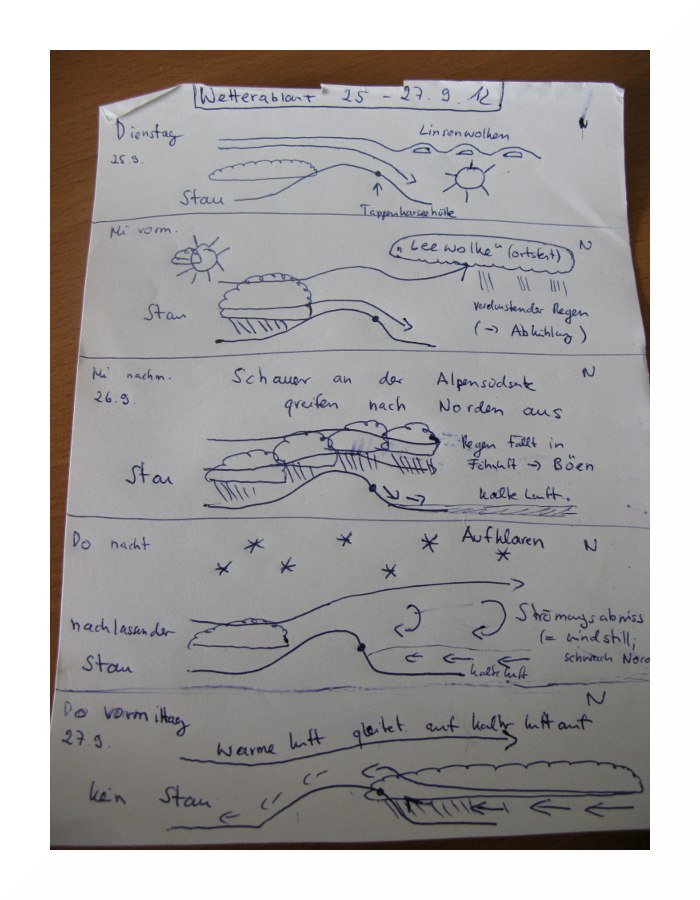 Wetterablauf 25 - 27. 9. 12
Dienstag
25.9.
Linsenwolken
Stau
Tappenkarseehütte
Mi vorm.
"Leewolke" (ortsfest)
N
Stau
verdunstender Regen
(→ Abkühlung)
Mi nachm.
26.9.
Schauer an der Alpensüdseite
greifen nach Norden aus
N
Stau
Regen fällt in
Föhnluft → Böen
kalte Luft.
Do nacht
Aufklaren
N
nachlassender
Stau
Strömungsabriss
(= windstill,
schwach Nord
kalte Luft
Do vormittag
27.9.
N
warme Luft gleitet auf kalte Luft auf
kein Stau